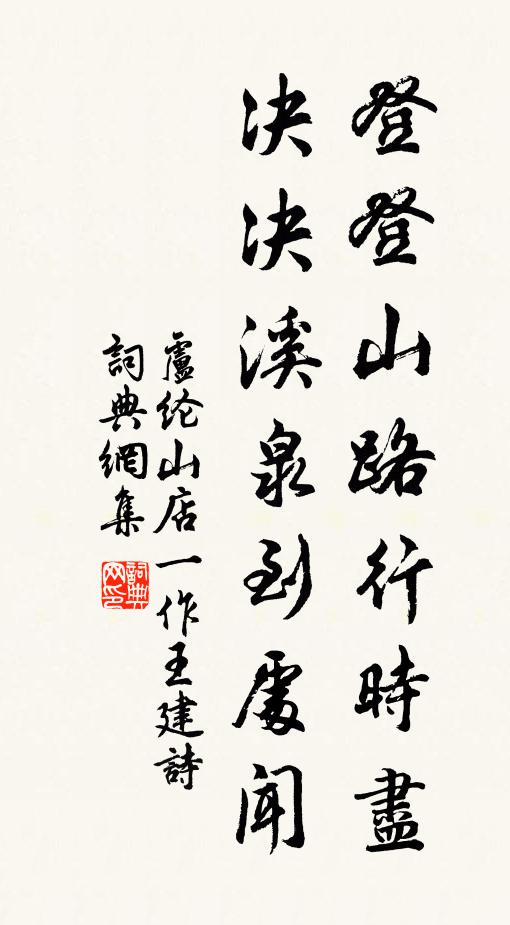 登登山路行時盡
决决溪泉到處聞
盧纶山店一作王建詩
詞典網集
詞典
网印